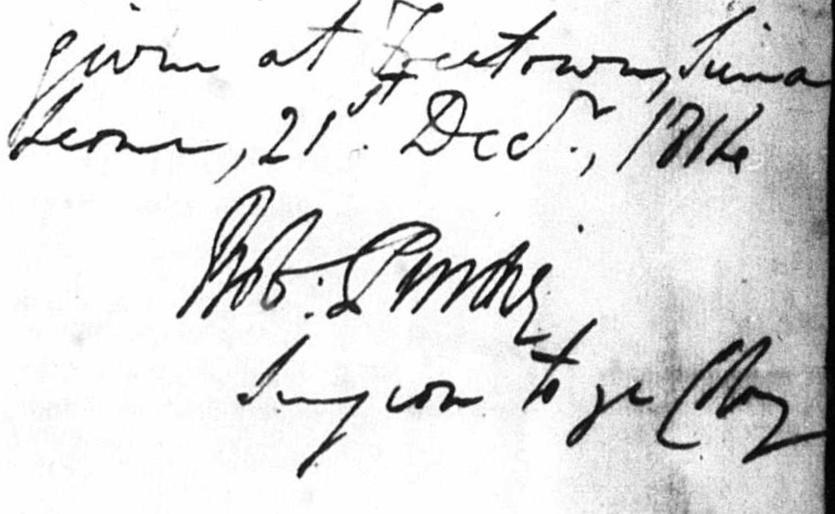 given at Freetown, Sierra
Leone, 21st. Decr., 1814
Rob:
Surgeon to ye Cloy